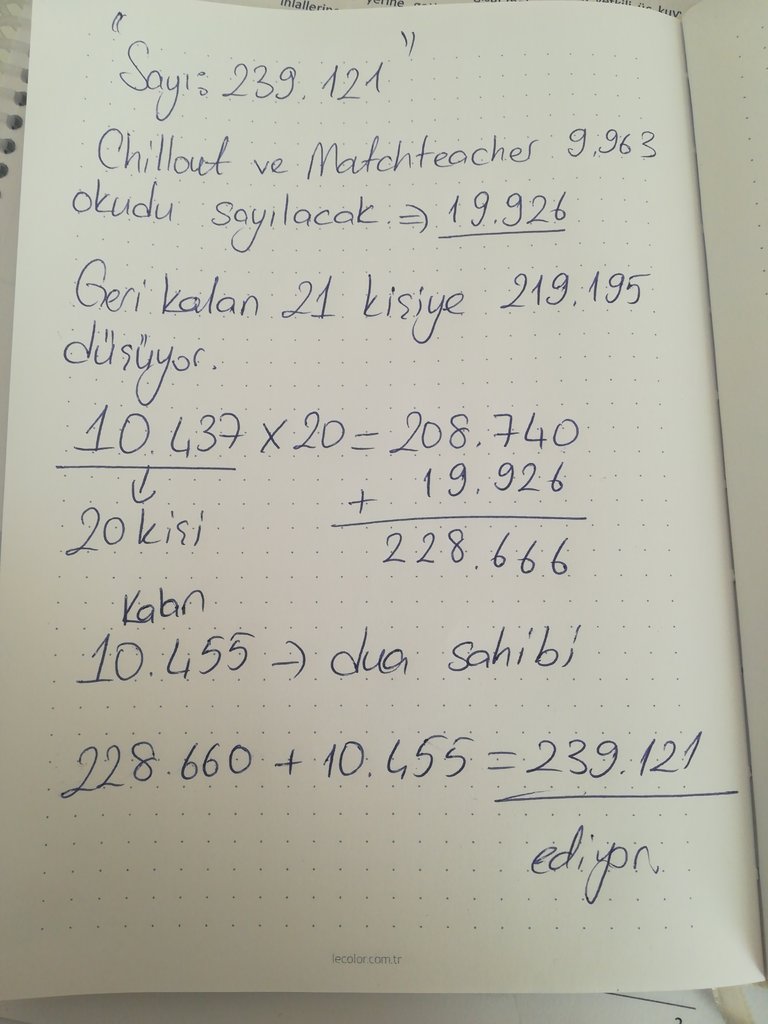 inlallerin yerine
"Sayı: 239.121"
Chillout ve Matchteacher 9.963
okudu sayılacak ⇒ 19.926
Geri kalan 21 kişiye 219.195
düşüyor.
10.437 x 20 = 208.740
+ 19.926
20 kişi
228.666
Kalan
10.455 → dua sahibi
228.660 + 10.455 = 239.121
ediyor.
lecolor.com.tr